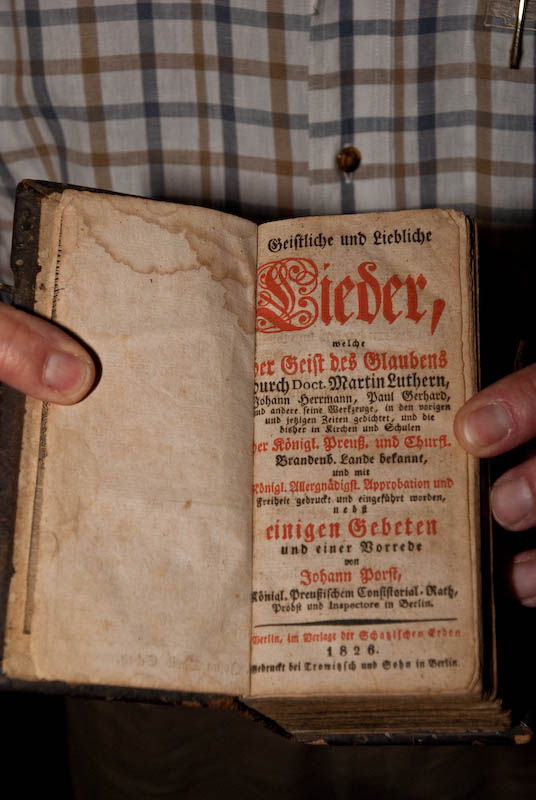 Geistliche und Liebliche
Lieder,
welche
der Geist des Glaubens
durch Doct. Martin Luthern,
Johann Herrmann, Paul Gerhard,
und andere seine Werkzeuge, in den vorigen
und jetzigen Zeiten gedichtet, und die
bisher in Kirchen und Schulen
der Königl. Preuß. und Churfl.
Brandenb. Lande bekannt,
und mit
Königl. Allergnädigst. Approbation und
Freiheit gedruckt und eingeführt worden,
nebst
einigen Gebeten
und einer Vorrede
von
Johann Porst,
Königl. Preußischem Consistorial-Rath,
Probst und Inspectore in Berlin.
Berlin, im Verlage der Schatzischen Erben
1826.
Gedruckt bei Trowitzsch und Sohn in Berlin.